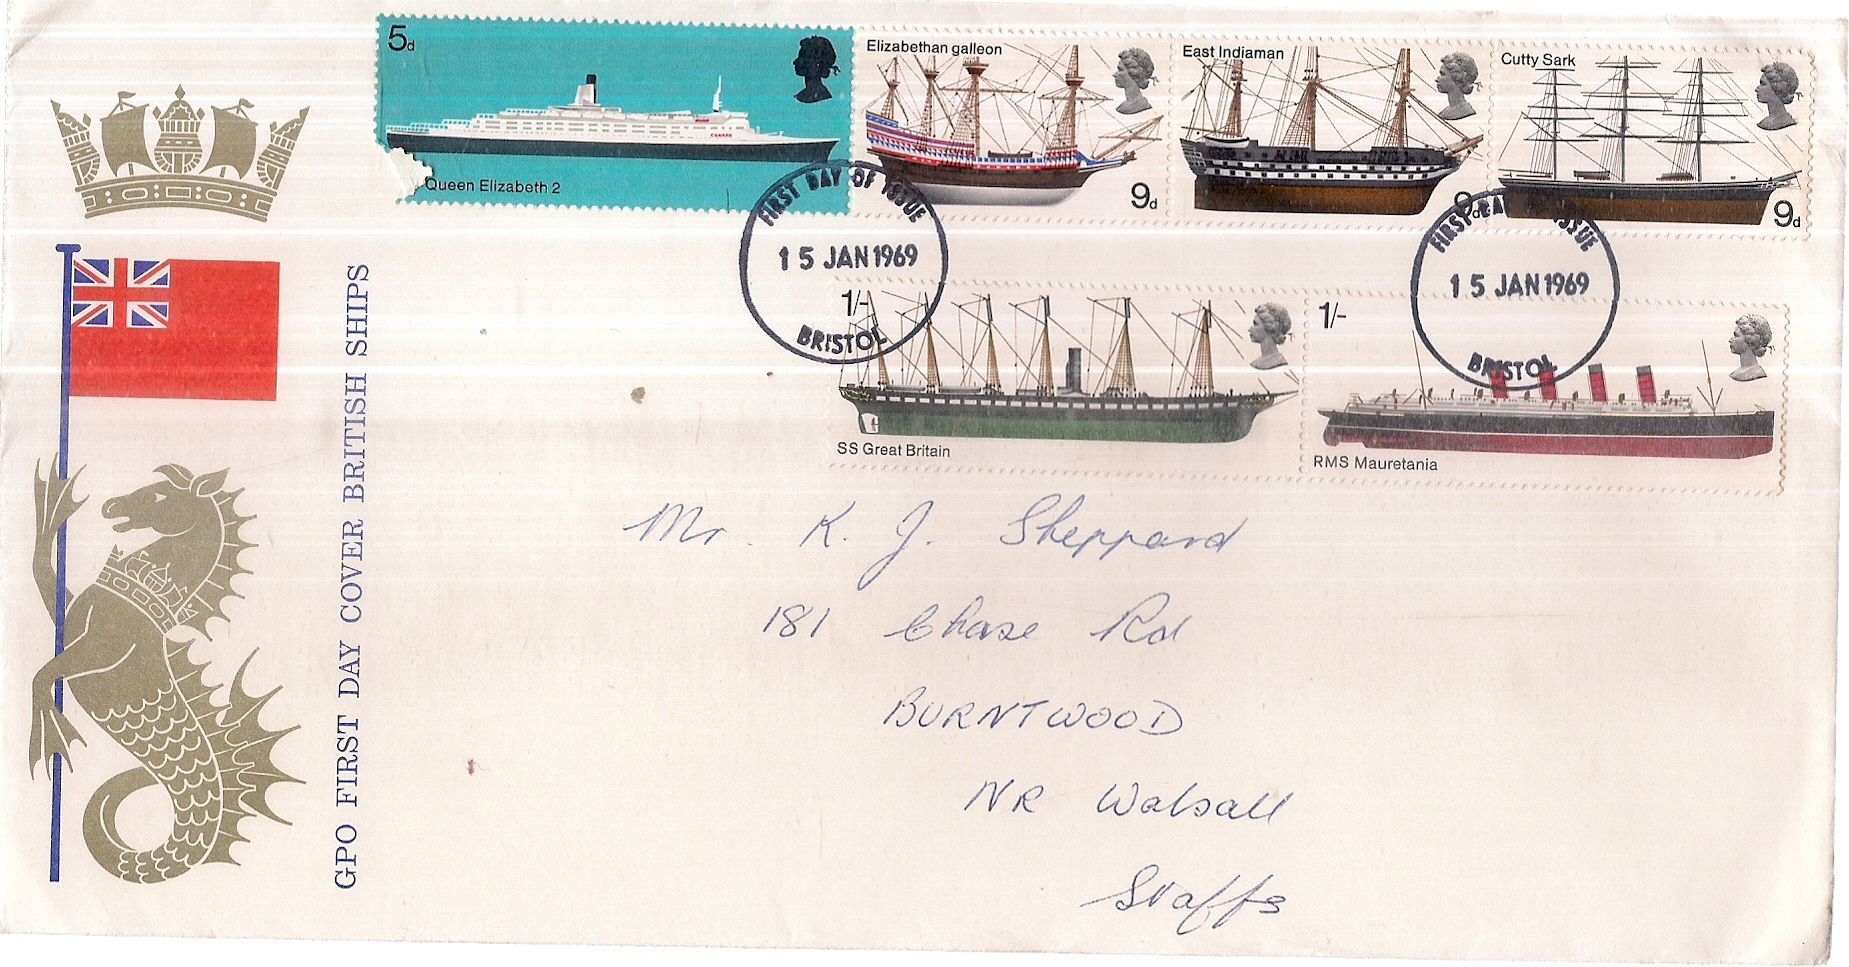 5d
Queen Elizabeth 2
CUNARD
Elizabethan galleon
9d
East Indiaman
9d
Cutty Sark
9d
FIRST DAY OF ISSUE
15 JAN 1969
BRISTOL
FIRST DAY OF ISSUE
15 JAN 1969
BRISTOL
1/-
SS Great Britain
1/-
RMS Mauretania
GPO FIRST DAY COVER BRITISH SHIPS
Mr. K. J. Sheppard
181 Chase Rd
BURNTWOOD
NR Walsall
Staffs